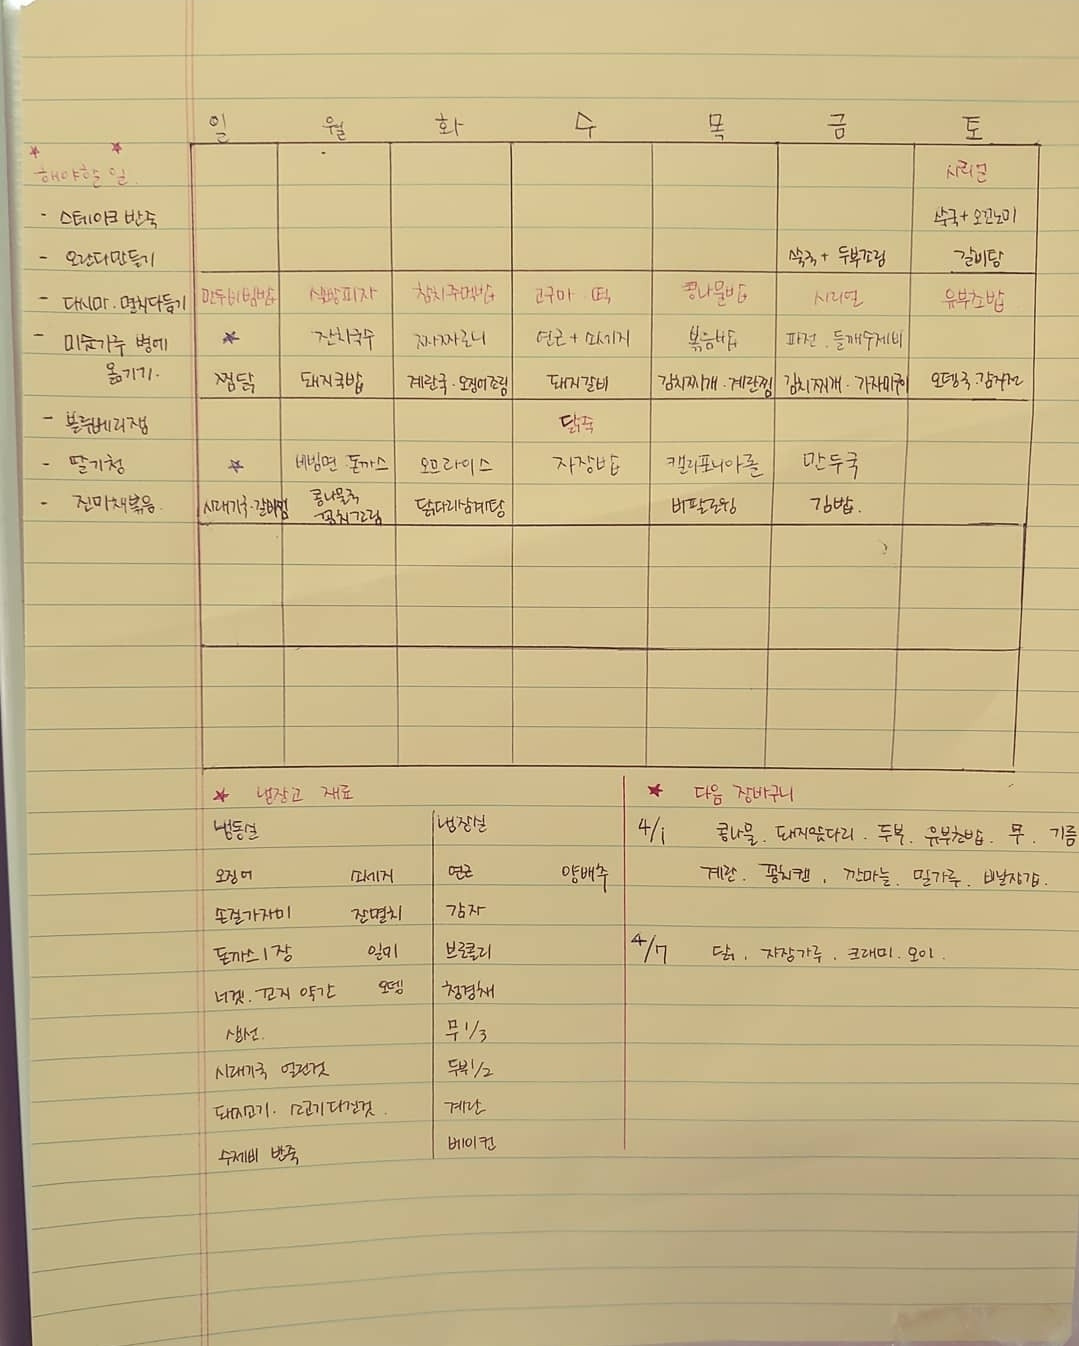 일 월 화 수 목 금 토
해야할 일. 시리얼
- 스테이크 반죽 쑥국+오꼬노미
- 오란다만들기 쑥국+두부조림 갈비탕
- 다시마.멸치다듬기 만두비빔밥 식빵피자 참치주먹밥 고구마.떡 콩나물밥 시리얼 유부초밥
- 미숫가루 병에 잔치국수 짜짜로니 연근+소세지 볶음밥 파전.들깨수제비
옮기기. 찜닭 돼지국밥 계란국.오징어조림 돼지갈비 김치찌개.계란찜 김치찌개.가자미구이 오뎅국.감자전
- 블루베리잼 닭죽
- 딸기청 비빔면.돈까스 오므라이스 자장밥 캘리포니아롤 만두국
- 진미채볶음. 시래기국.갈비찜 콩나물국 꽁치조림 닭다리삼계탕 버팔로윙 김밥.
냉장고 재료 다음 장바구니
냉동실 냉장실 4/1 콩나물.돼지앞다리.두부.유부초밥.무.기름
오징어 소세지 연근 양배추 계란.꽁치캔.깐마늘.밀가루.비닐장갑.
손질가자미 잔멸치 감자
돈까스1장 일미 브로콜리 4/7 닭.자장가루.크래미.오이.
너겟.꼬지 약간 오뎅 청경채
생선. 무1/3
시래기국 얼린것 두부1/2
돼지고기.소고기다진것. 계란
수제비 반죽 베이컨